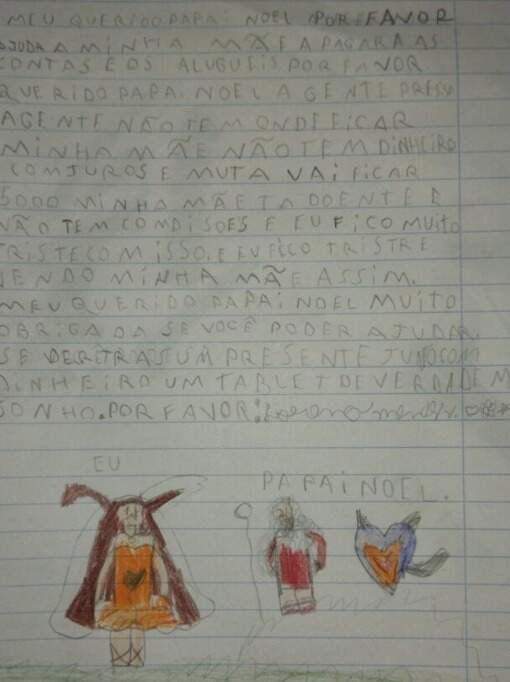 MEU QUERIDO PAPAI NOEL POR FAVOR
AJUDA A MINHA MÃE A PAGARA AS
CONTAS E OS ALUGUEIS POR FAVOR
QUERIDO PAPA NOEL A GENTE PRESU
AGENTE NÃO TEM ONDE FICAR
MINHA MÃE NÃO TEM DINHEIRO
COM JUROS E MUTA VAI FICAR
5000 MINHA MÃE TA DOENTE E
NÃO TEM CONDISOES E EU FICO MUITO
TRISTE COM ISSO. E EU FICO TRISTRE
VENDO MINHA MÃE ASSIM.
MEU QUERIDO PAPAI NOEL MUITO
OBRIGADA SE VOCÊ PODER AJUDAR.
SE DER TRAS UM PRESENTE JUTO COM
DINHEIRO UM TABLET DE VERDADE M
SONHO. POR FAVOR:
EU
PAPAI NOEL.